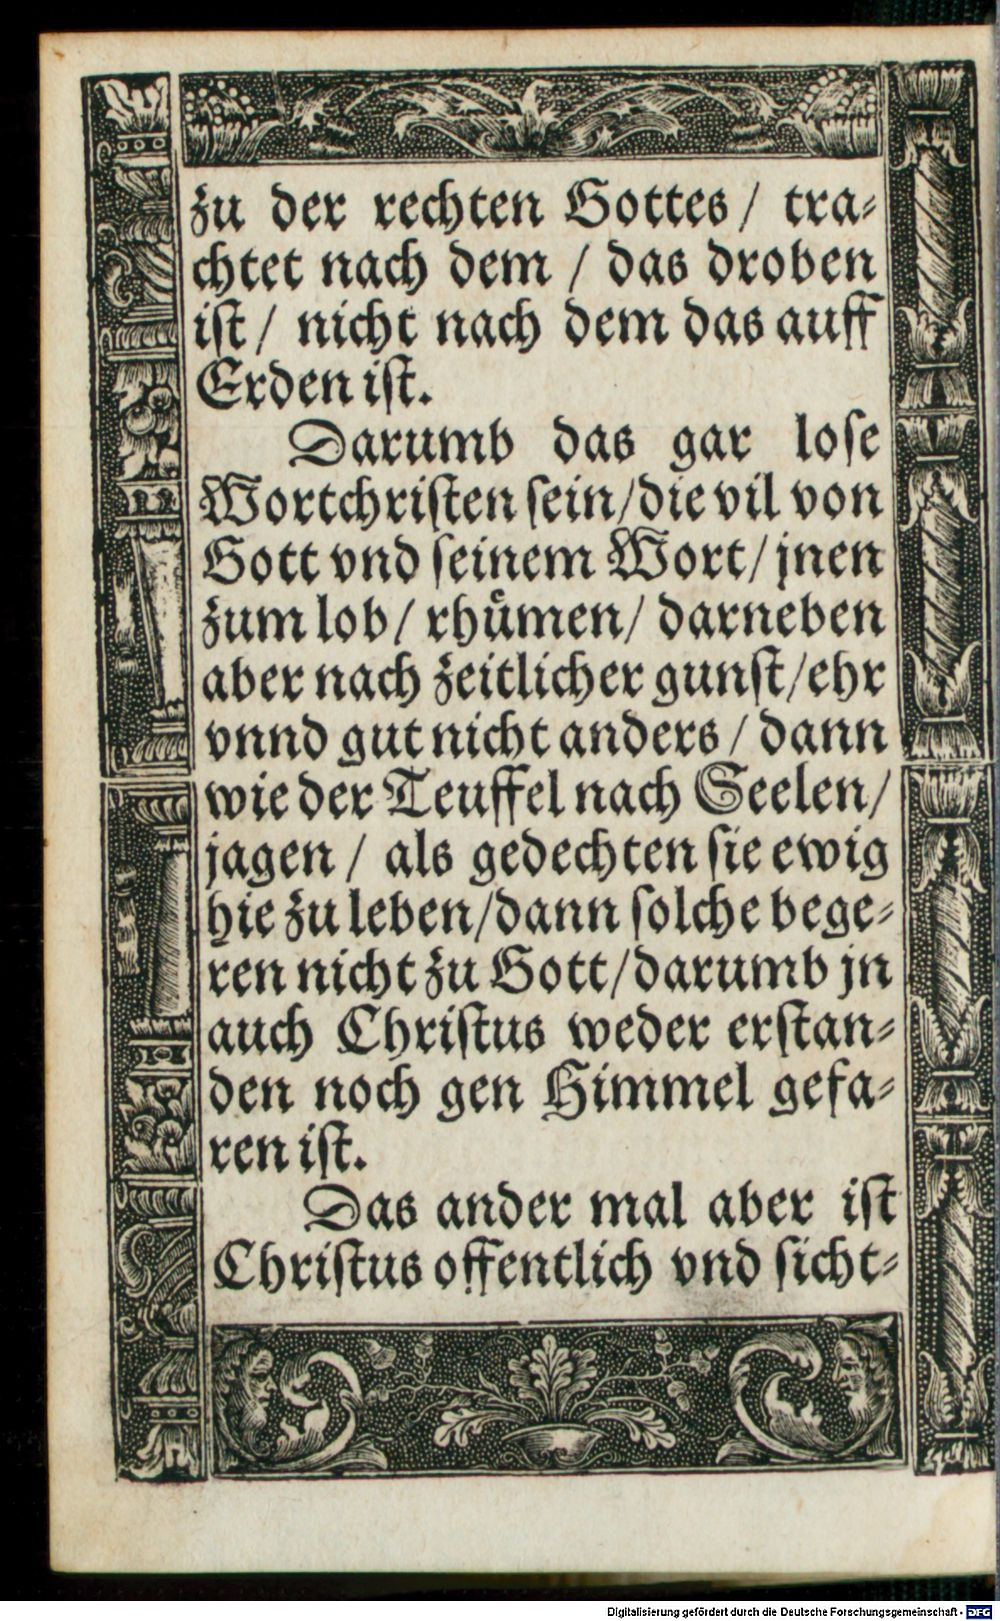 zu der rechten Gottes / tra⸗
chtet nach dem / das droben
iſt / nicht nach dem das auff
Erden iſt.
Darumb das gar loſe
Wortchriſten ſein/die vil von
Gott vnd ſeinem Wort/ jnen
zum lob/ rhuͤmen/ darneben
aber nach zeitlicher gunſt/ehr
vnnd gut nicht anders / dann
wie der Teuffel nach Seelen/
jagen / als gedechten ſie ewig
hie zu leben/dann ſolche bege⸗
ren nicht zu Gott/darumb jn
auch Chriſtus weder erſtan⸗
den noch gen Himmel gefa⸗
ren iſt.
Das ander mal aber iſt
Chriſtus offentlich vnd ſicht⸗
Digitalisierung gefördert durch die Deutsche Forschungsgemeinschaft - DFG